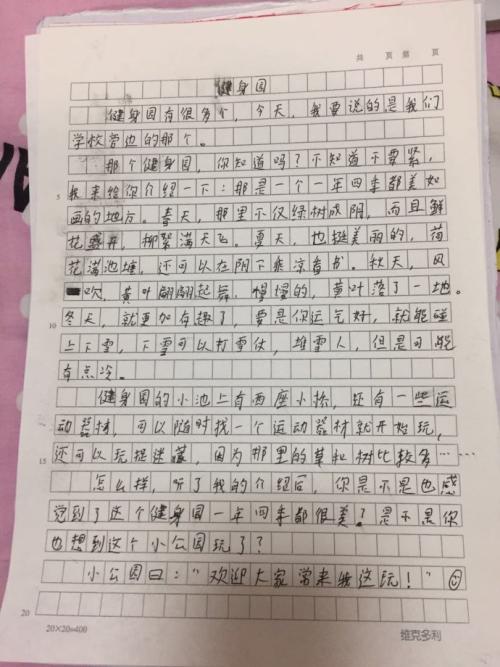 共 页 第 页
健身园
健身园有很多个，今天，我要说的是我们
学校旁边的那个。
那个健身园，你知道吗？不知道不要紧，
我来给你介绍一下：那是一个一年四季都美如
画的地方。春天，那里不仅绿树成阴，而且鲜
花盛开，柳絮满天飞。夏天，也挺美丽的，荷
花满池塘，还可以在阴下乘凉看书。秋天，风
一吹，黄叶翩翩起舞，慢慢的，黄叶落了一地。
冬天，就更加有趣了，要是你运气好，就能碰
上下雪，下雪可以打雪仗，堆雪人，但是可能
有点冷。
健身园的小池上有两座小桥，还有一些运
动器材，可以随时找一个运动器材就开始玩，
还可以玩捉迷藏，因为那里的草和树比较多……
怎么样，听了我的介绍后，你是不是也感
觉到了这个健身园一年四季都很美？是不是你
也想到这个小公园玩了？
小公园曰：“欢迎大家常来我这玩！”
5
10
15
20
20×20=400
维克多利